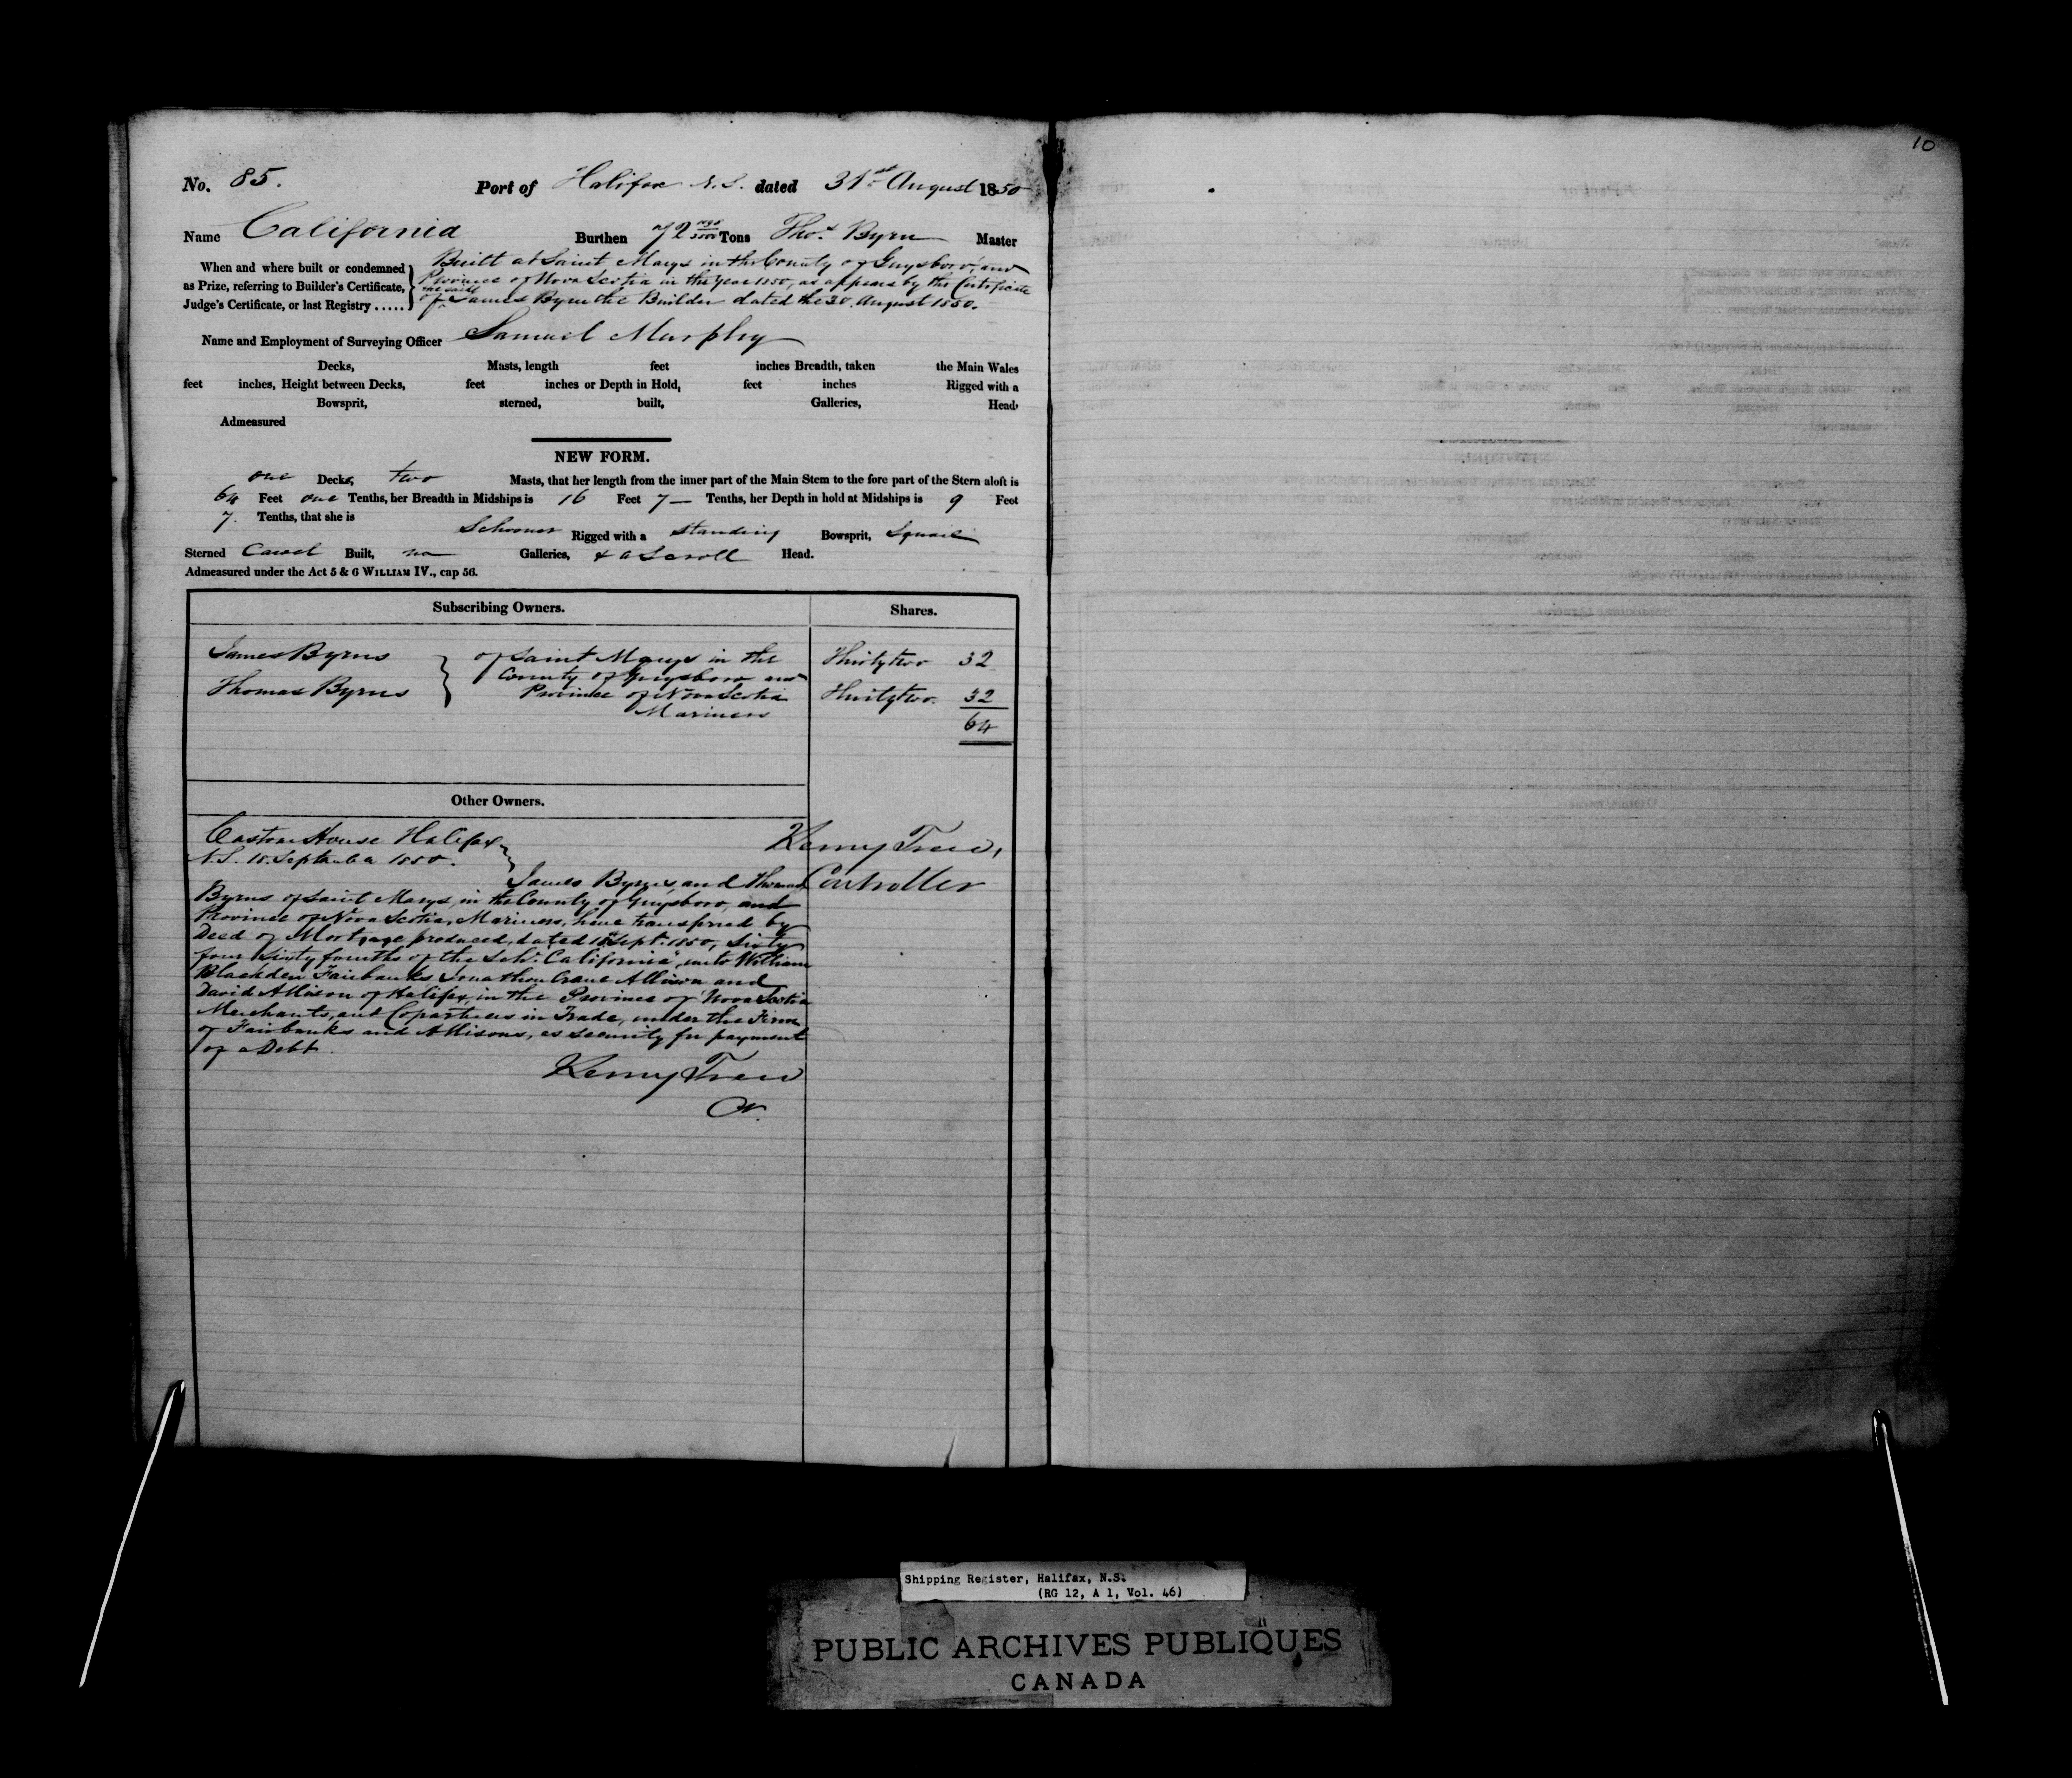 10
No. 85. Port of Halifax N.S. dated 31st August 1850
Name California Burthen 72 Tons Thos. Byrn Master
When and where built or condemned as Prize, referring to Builder's Certificate, Judge's Certificate, or last Registry .....
Built at Saint Marys in the County of Guysboro', and
Province of Nova Scotia in the year 1850, as appears by the Certificate
of the said James Byrn the Builder dated the 30. August 1850.
Name and Employment of Surveying Officer Samuel Murphy
Decks, Masts, length feet inches Breadth, taken the Main Wales
feet inches, Height between Decks, feet inches or Depth in Hold, feet inches Rigged with a
Bowsprit, sterned, built, Galleries, Head,
Admeasured
NEW FORM.
one Decks, two Masts, that her length from the inner part of the Main Stem to the fore part of the Stern aloft is
64 Feet one Tenths, her Breadth in Midships is 16 Feet 7 — Tenths, her Depth in hold at Midships is 9 Feet
7. Tenths, that she is Schooner Rigged with a standing Bowsprit, Square
Sterned Carvel Built, no Galleries, & a Scroll Head.
Admeasured under the Act 5 & 6 WILLIAM IV., cap 56.
Subscribing Owners. Shares.
James Byrns } of Saint Marys in the Thirty two 32
County of Guysboro and
Thomas Byrns Province of Nova Scotia Thirty two. 32
Mariners 64
Other Owners.
Custom House Halifax } Kenny Trew,
N.S. 18. September 1850.
James Byrns, and Thomas Controller
Byrns of Saint Marys, in the County of Guysboro, and
Province of Nova Scotia, Mariners, have transferred by
Deed of Mortgage produced, dated 18th Sept. 1850, Sixty
four Sixty fourths of the Schr. "California", unto William
Blackden Fairbanks Jonathan Crane Allison and
David Allison of Halifax, in the Province of Nova Scotia
Merchants, and Copartners in Trade, under the Firm
of Fairbanks and Allisons, as security for payment
of a Debt.
Kenny Trew
Shipping Register, Halifax, N.S.
(RG 12, A 1, Vol. 46)
PUBLIC ARCHIVES PUBLIQUES
CANADA